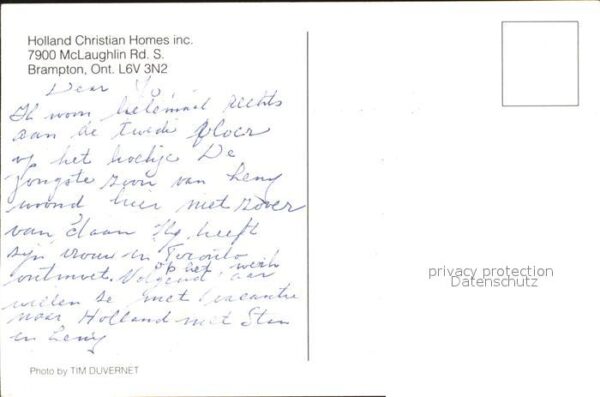 Holland Christian Homes inc.
7900 McLaughlin Rd. S.
Brampton, Ont. L6V 3N2
Dear
Ik woon helemaal rechts
aan de twede floor
op het hoekje De
jongste zoon van Leny
woond hier niet zover
van daan Hy heeft
zyn vrouw in Toronto
op het werk
ontmoet. Volgend Jaar
willen ze met vacantie
naar Holland met Stan
en Leny
Photo by TIM DUVERNET
privacy protection
Datenschutz